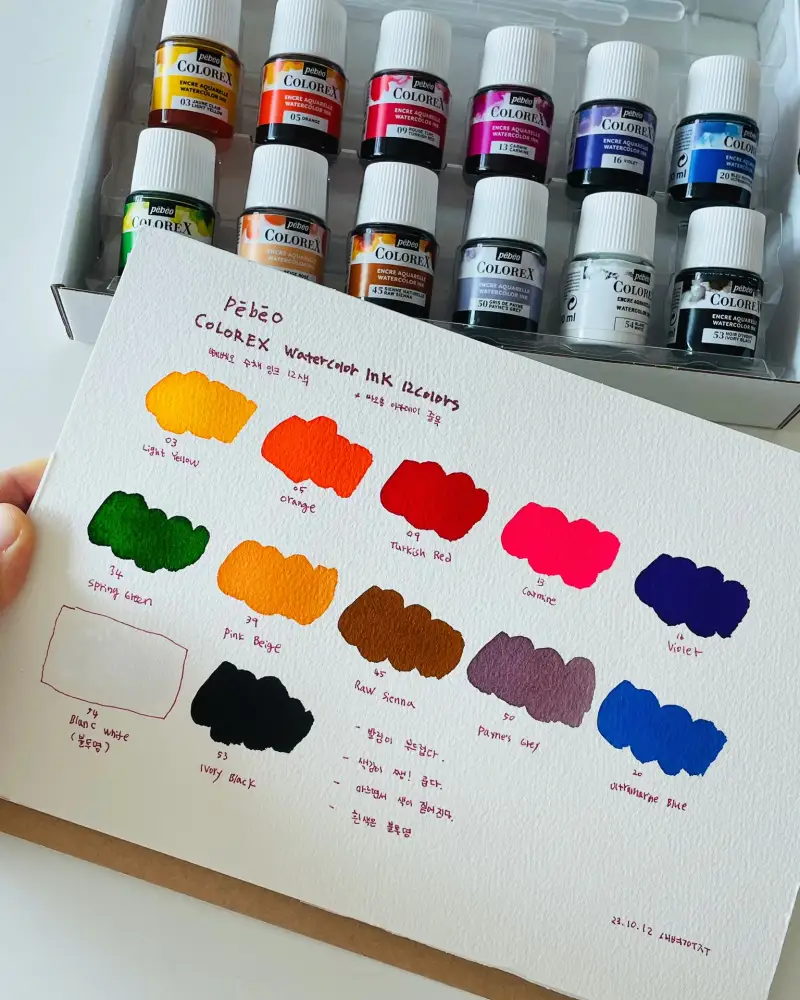 pébéo
COLOREX
ENCRE AQUARELLE
WATERCOLOR INK
03 JAUNE CLAIR
LIGHT YELLOW
pébéo
COLOREX
ENCRE AQUARELLE
WATERCOLOR INK
05 ORANGE
pébéo
COLOREX
ENCRE AQUARELLE
WATERCOLOR INK
09 ROUGE TURC
TURKISH RED
pébéo
COLOREX
ENCRE AQUARELLE
WATERCOLOR INK
13 CARMIN
CARMINE
pébéo
COLOREX
ENCRE AQUARELLE
WATERCOLOR INK
16 VIOLET
pébéo
COLOREX
ENCRE AQUARELLE
WATERCOLOR INK
20
pébéo
COLOREX
pébéo
COLOREX
ENCRE AQUARELLE
WATERCOLOR INK
pébéo
COLOREX
ENCRE AQUARELLE
WATERCOLOR INK
45 SIENNE NATURELLE
RAW SIENNA
pébéo
COLOREX
ENCRE AQUARELLE
WATERCOLOR INK
50 GRIS DE PAYNE
PAYNE'S GREY
pébéo
COLOREX
ENCRE AQUARELLE
WATERCOLOR INK
54
pébéo
COLOREX
ENCRE AQUARELLE
WATERCOLOR INK
53 NOIR D'IVOIRE
IVORY BLACK
Pēbēo
COLOREX Watercolor INK 12colors
뻬베오 수채 잉크 12색
03
Light Yellow
05
Orange
09
Turkish Red
13
Carmine
16
Violet
34
Spring Green
39
Pink Beige
45
Raw Sienna
50
Payne's Grey
20
Ultramarine Blue
54
Blanc White
(불투명)
53
IVory Black
- 발림이 부드럽다.
- 색감이 쨍! 곱다.
- 마르면서 색이 짙어진다.
- 흰색은 불투명
23.10.12